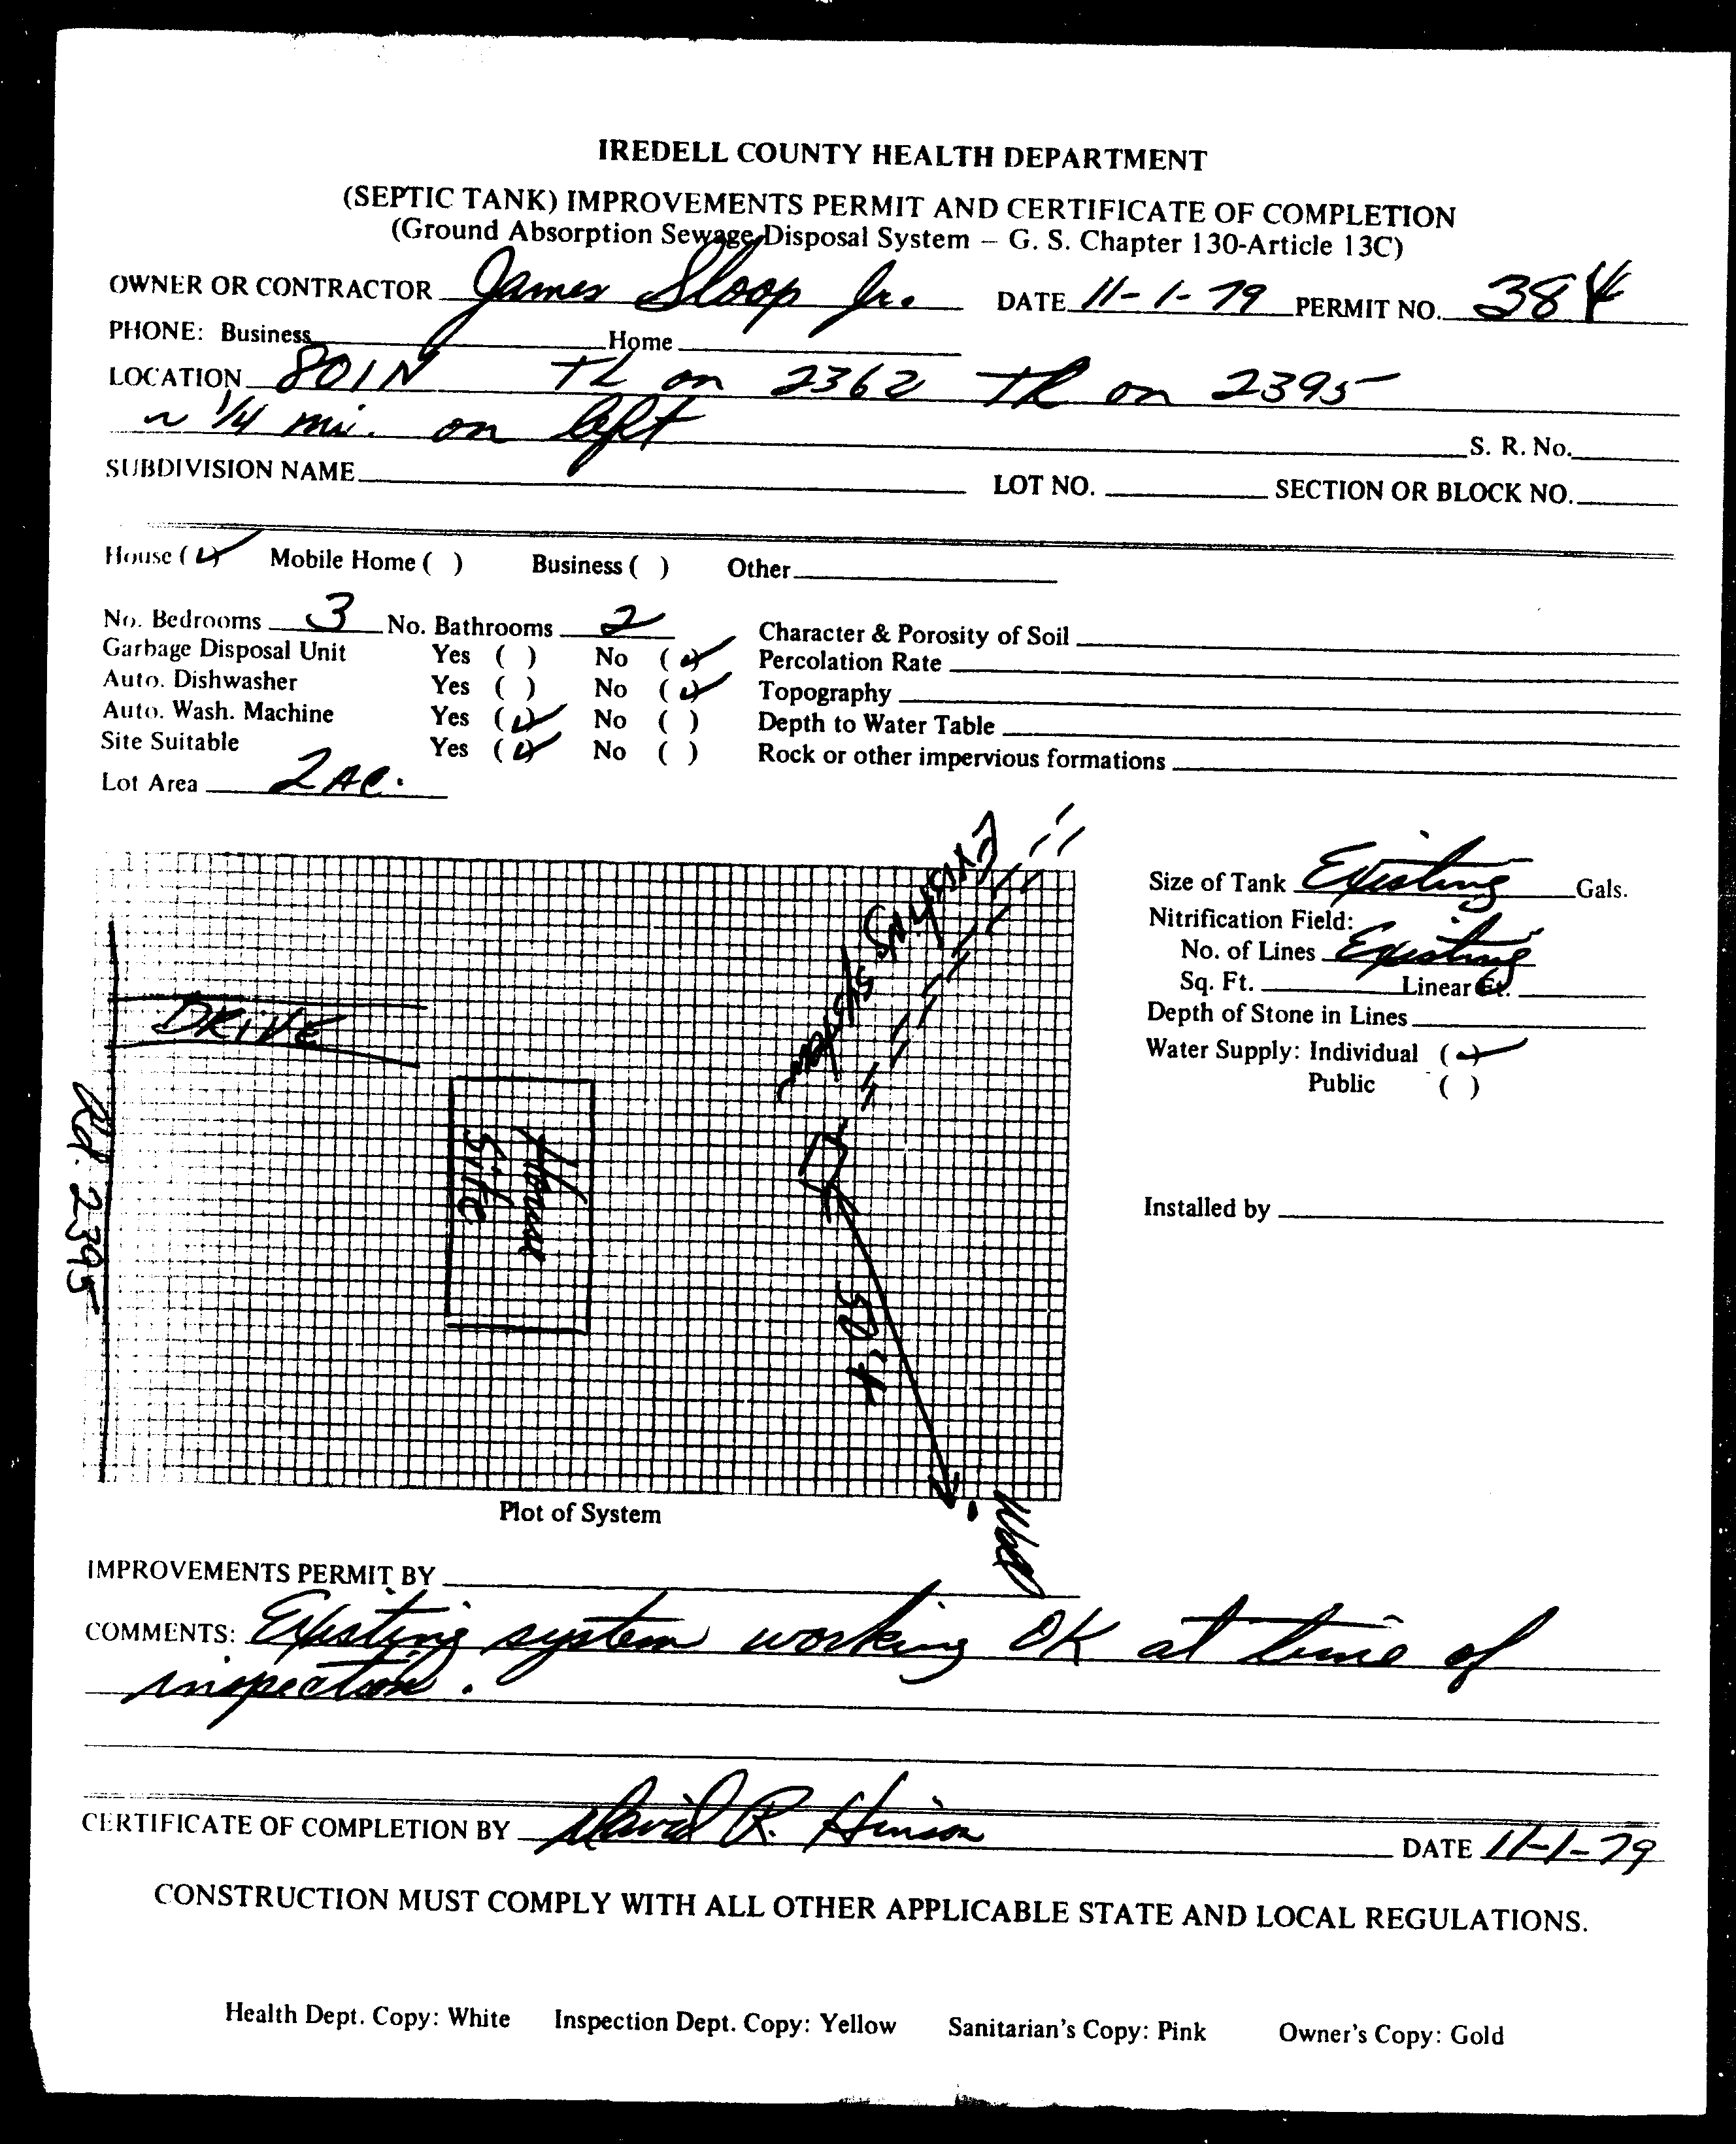 IREDELL COUNTY HEALTH DEPARTMENT
(SEPTIC TANK) IMPROVEMENTS PERMIT AND CERTIFICATE OF COMPLETION
(Ground Absorption Sewage Disposal System – G. S. Chapter 130-Article 13C)
OWNER OR CONTRACTOR James Sloop Jr. DATE 11-1-79 PERMIT NO. 384
PHONE: Business Home
LOCATION 801N TL on 2362 TR on 2395
~ 1/4 mi. on left S. R. No.
SUBDIVISION NAME LOT NO. SECTION OR BLOCK NO.
House (✓) Mobile Home ( ) Business ( ) Other
No. Bedrooms 3 No. Bathrooms 2 Character & Porosity of Soil
Garbage Disposal Unit Yes ( ) No (✓) Percolation Rate
Auto. Dishwasher Yes ( ) No (✓) Topography
Auto. Wash. Machine Yes (✓) No ( ) Depth to Water Table
Site Suitable Yes (✓) No ( ) Rock or other impervious formations
Lot Area 2 AC.
Existing System
DRIVE
Rd. 2395
House
Site
50' +
Well
Plot of System
Size of Tank Existing Gals.
Nitrification Field:
No. of Lines Existing
Sq. Ft. Linear Ft.
Depth of Stone in Lines
Water Supply: Individual (✓)
Public ( )
Installed by
IMPROVEMENTS PERMIT BY
COMMENTS: Existing system working OK at time of
inspection.
CERTIFICATE OF COMPLETION BY David R. Hinson DATE 11-1-79
CONSTRUCTION MUST COMPLY WITH ALL OTHER APPLICABLE STATE AND LOCAL REGULATIONS.
Health Dept. Copy: White Inspection Dept. Copy: Yellow Sanitarian's Copy: Pink Owner's Copy: Gold